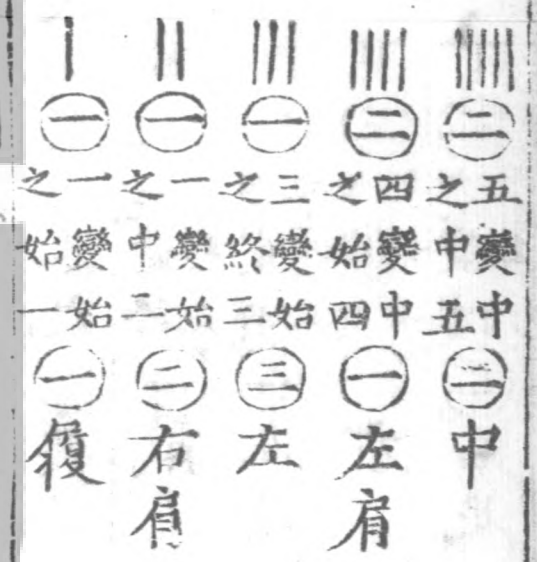 |||||
二
五變中
之中五
二
中
||||
二
四變中
之始四
一
左肩
|||
一
三變始
之終三
三
左
||
一
一變始
之中二
二
右肩
|
一
一變始
之始一
一
履